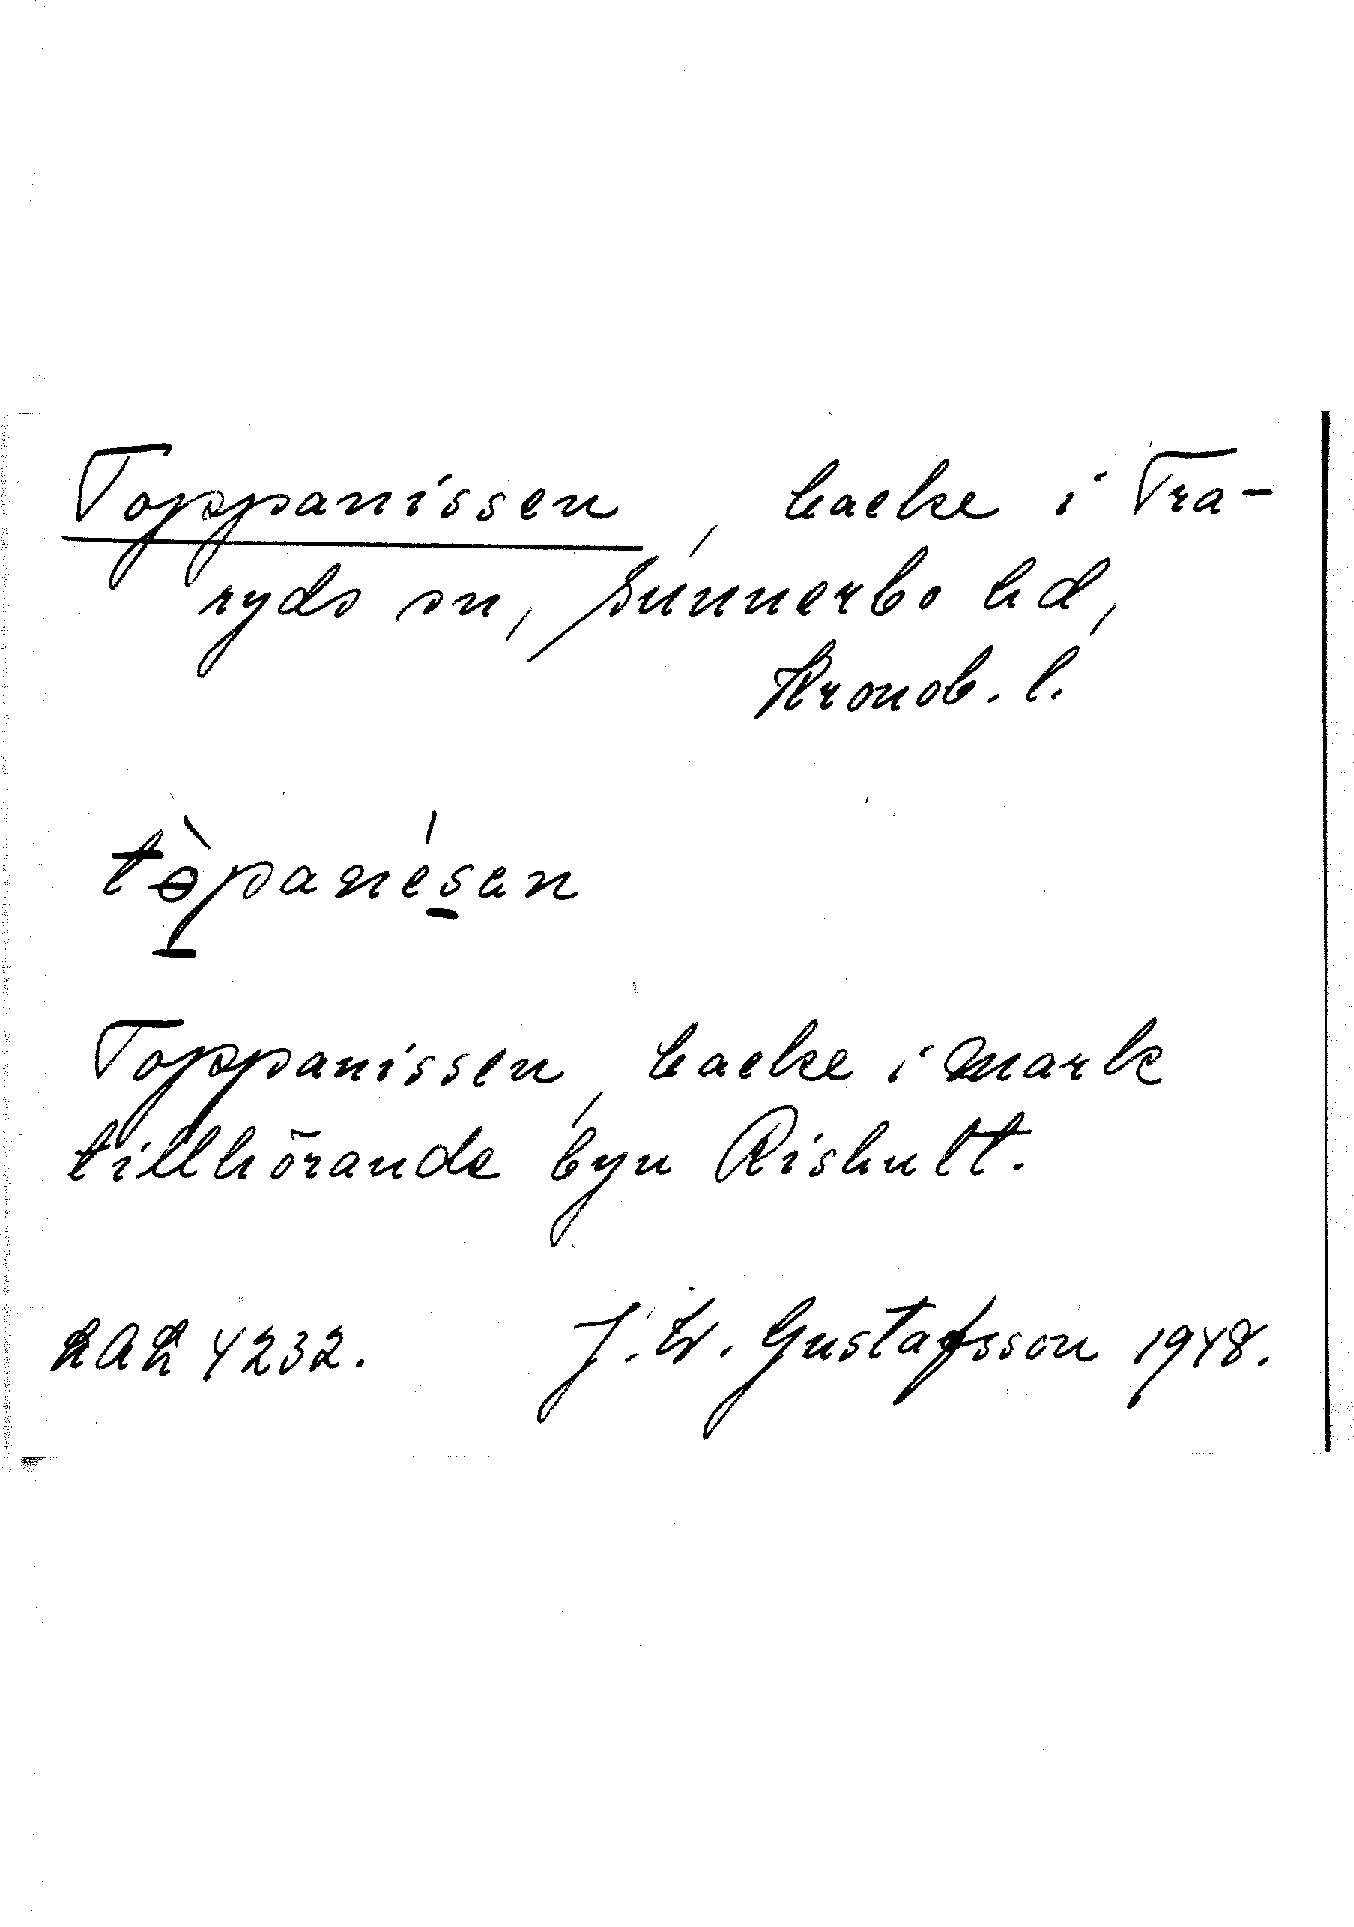 Toppanissen, backe i Tra-
ryds sn, Sunnerbo hd,
Kronob. l.
tɵ̀p̱anés̱en
Toppanissen, backe i mark
tillhörande byn Rishult.
LAL 4232. J. W. Gustafsson 1948.